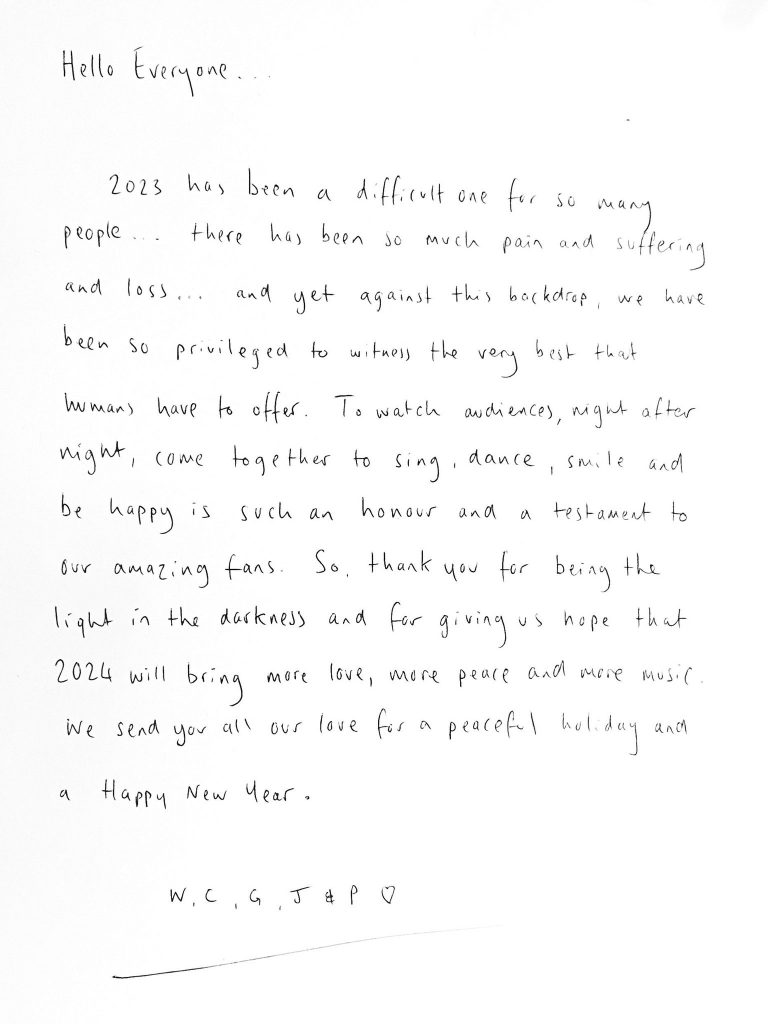 Hello Everyone...
2023 has been a difficult one for so many
people... there has been so much pain and suffering
and loss... and yet against this backdrop, we have
been so privileged to witness the very best that
humans have to offer. To watch audiences, night after
night, come together to sing, dance, smile and
be happy is such an honour and a testament to
our amazing fans. So, thank you for being the
light in the darkness and for giving us hope that
2024 will bring more love, more peace and more music.
We send you all our love for a peaceful holiday and
a Happy New Year.
W, C, G, J & P ♡